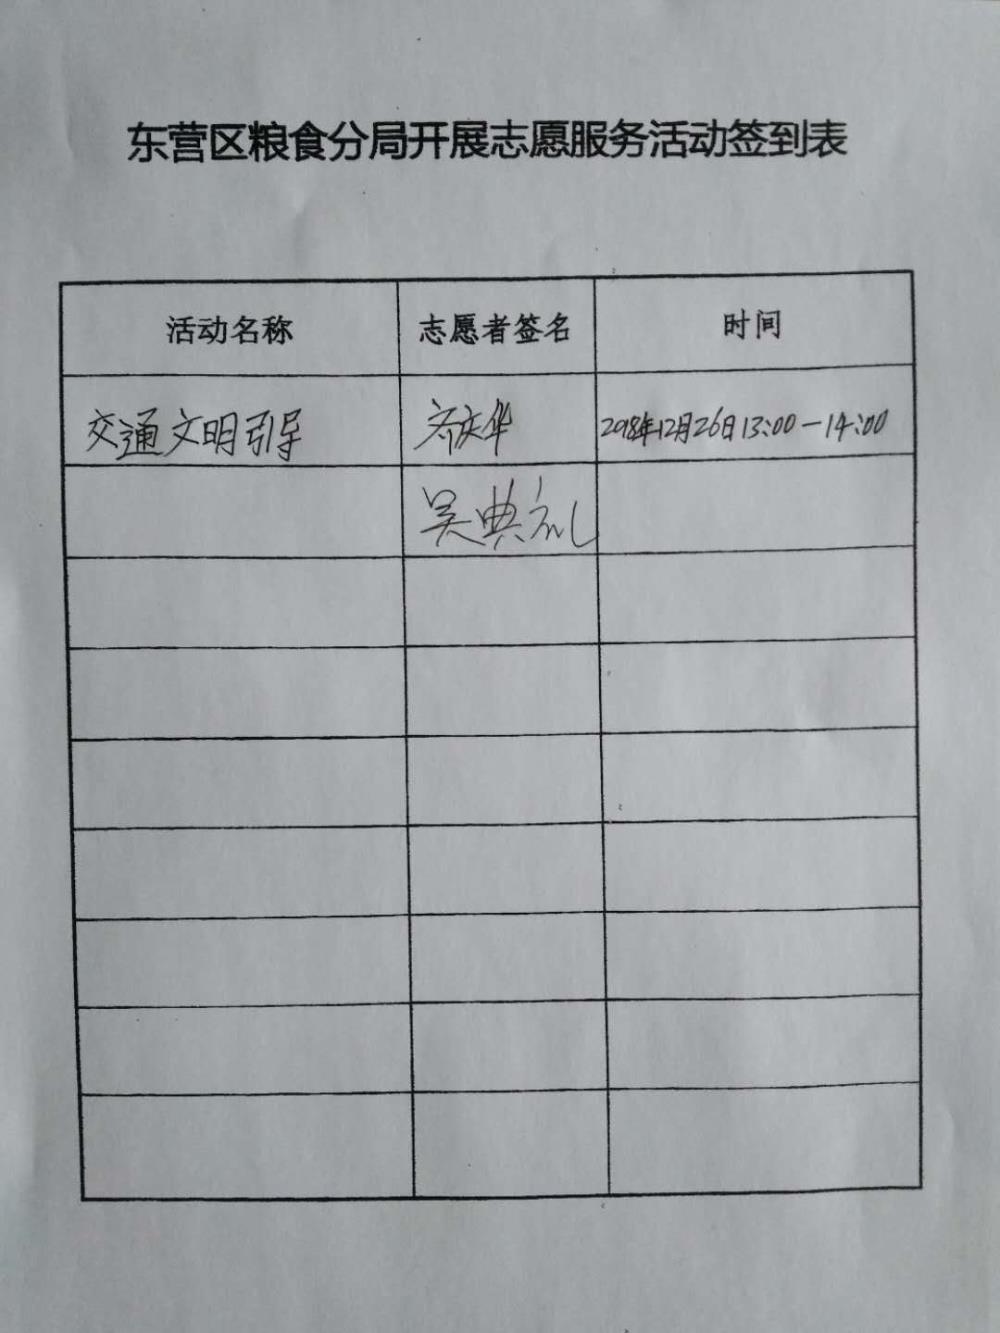 东营区粮食分局开展志愿服务活动签到表
活动名称 志愿者签名 时间
交通文明引导 齐庆华 2018年12月26日13:00-14:00
吴典礼